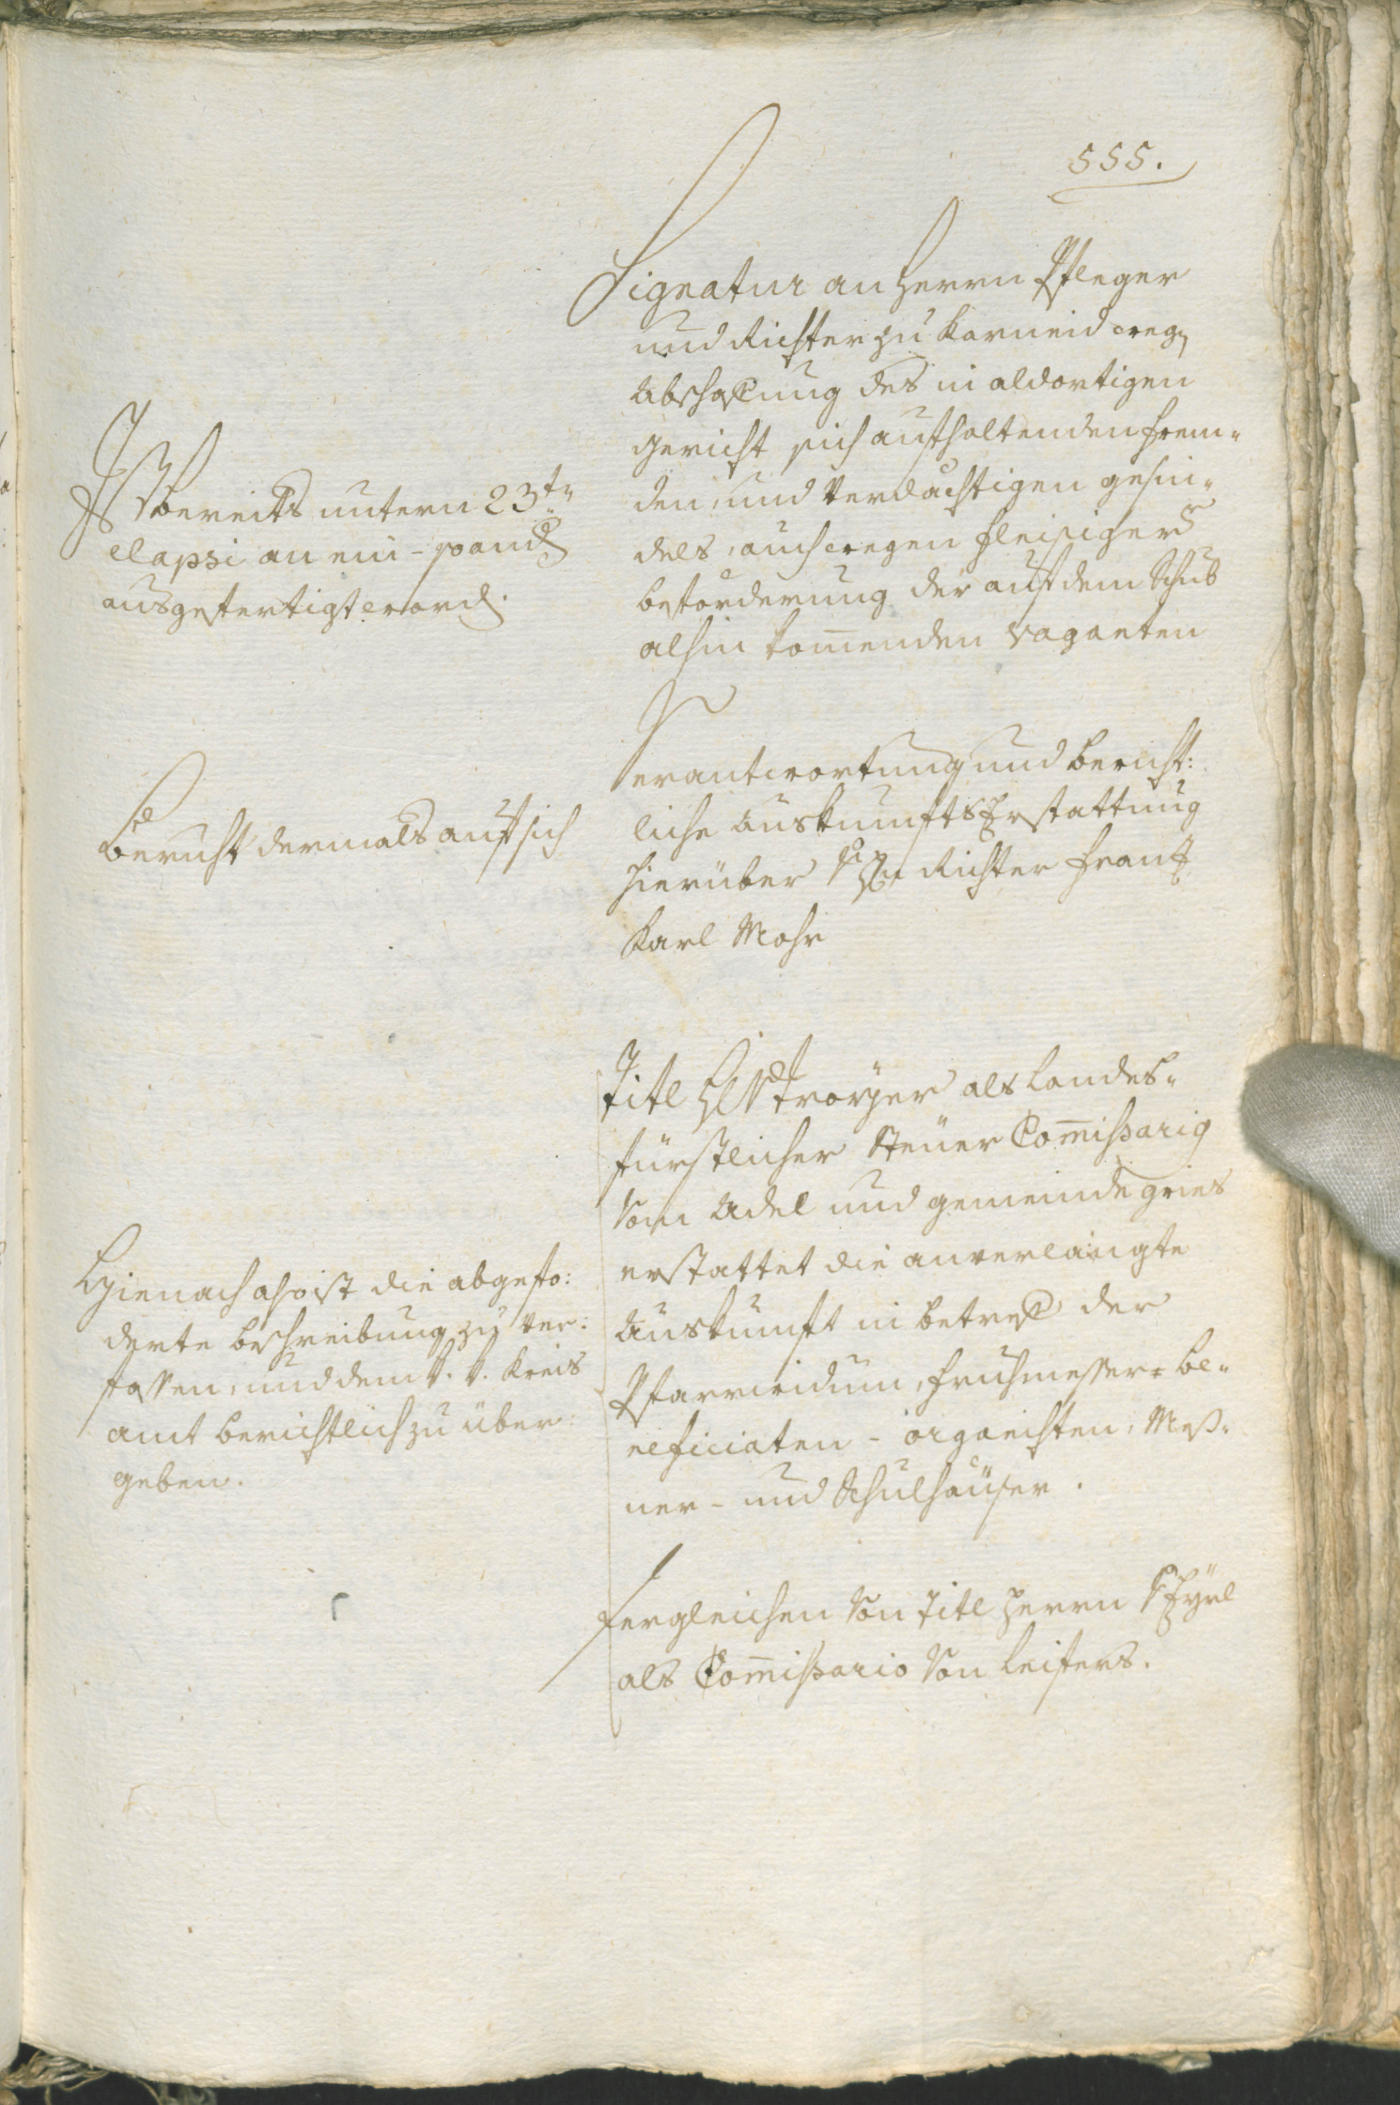 555.
Signatur an Herrn Pfleger
und Richter zu Karneid weg
Abschaffung des in aldortigen
Gericht sich aufhaltenden frem-
den, und verdächtigen Gesin-
dels, auch wegen fleisiger
Beförderung der auf dem Schub
alhin kom̅enden Vaganten
Ist bereits untern 23t
elapsi an ein-
ausgefertigt word.
Verantwortung und bericht:
liche Auskunfts Erstattung
hierüber Richter Franz
Karl Mohr
Beruht dermals auf sich
Titl v Troyer als Landes-
fürstlicher Steuer Com̅issarig
Vom Adel und gemeinde Gries
erstattet die anverlangte
Auskunft in betref der
Pfarrwidum, Fruhmesser- be-
neficiaten- organisten, Meß-
ner- und Schulhäuser.
Hienach also ist die abgefo:
derte beschreibung zu ver:
fassen, und dem k. k. Kreis
amt berichtlich zu über:
geben.
Dergleichen Von Titl Herrn
als Com̅issario Von Leifers.